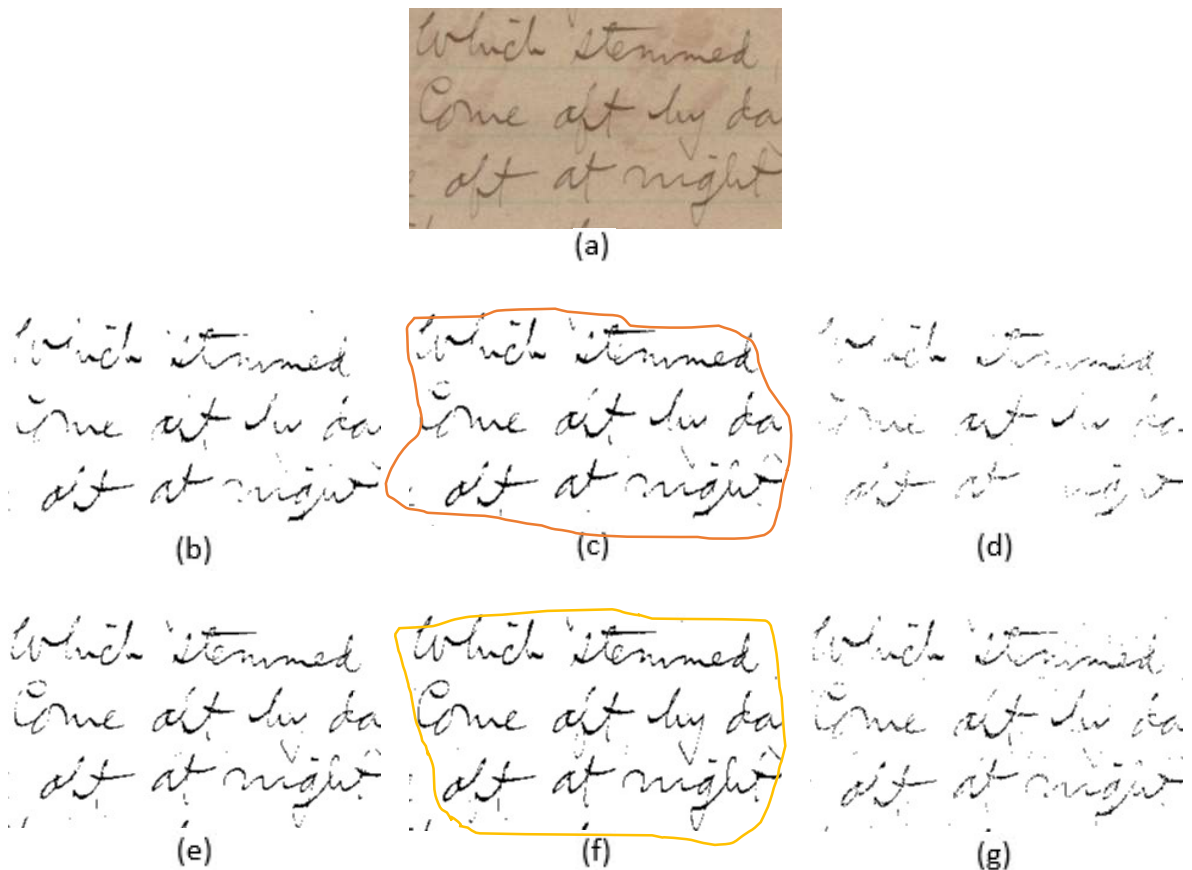 Which stemmed
Come oft by da
oft at night
(a)
Which stemmed
Come oft by da
oft at night
(b)
Which stemmed
Come oft by da
oft at night
(c)
Which stemmed
Come oft by da
oft at night
(d)
Which stemmed
Come oft by da
oft at night
(e)
Which stemmed
Come oft by da
oft at night
(f)
Which stemmed
Come oft by da
oft at night
(g)